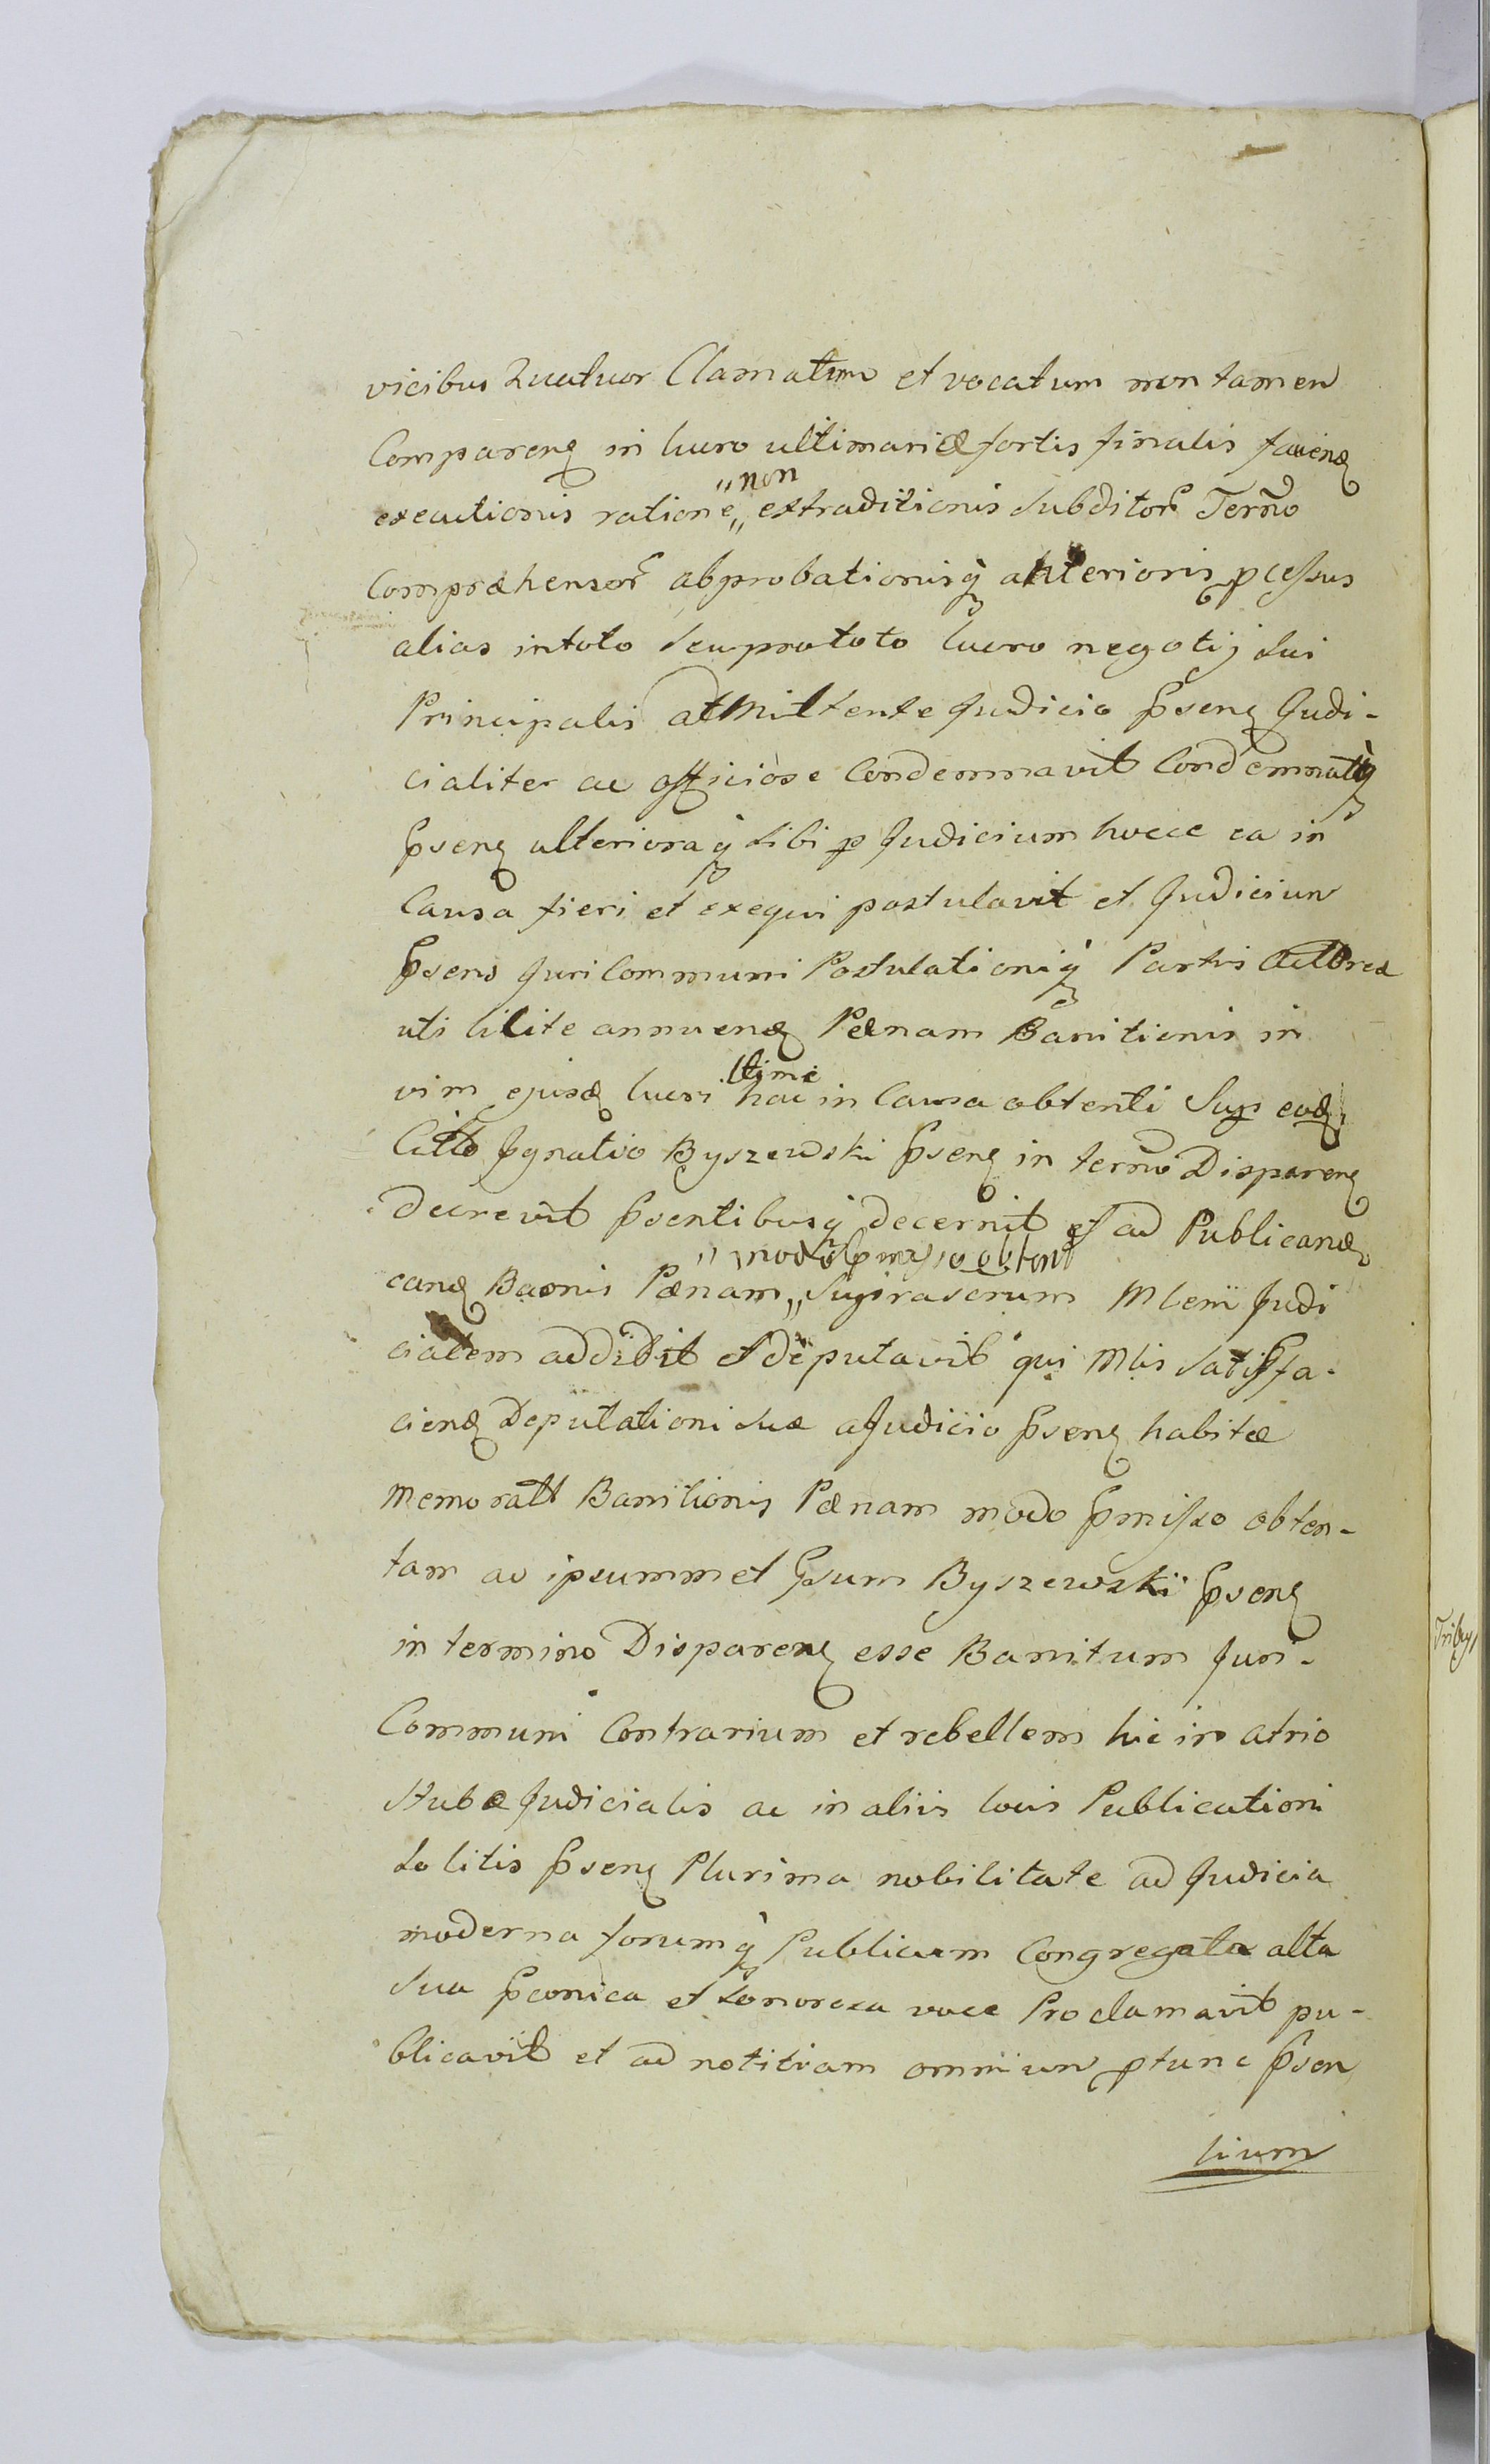 vicibus Quatuor Clamatum et vocatum non tamen
Comparenꝫ in lucro ultimariæ fortis finalis faciendꝫ
executionis ratione „non extraditionis Subditor Termo
Compræhensor abprobationisqꝫ anterioris pcessus
alias intoto Seuprototo lucro negotij sui
Principalis admittente Judicio pseng Judi-
cialiter ac officiose Condemnavit Condemnatqꝫ
psenꝫ ulterioraqꝫ sibi p Judicium hocce ea in
Causa fieri et exequi postulavit et Judicium
psens Juri Communi Postulationiqꝫ Partis Actorea
uti licite annuenꝫ Pænam Banitionis in
vim ejusdꝫ lucri ltime hac in Causa obtenti Sup eodꝫ
Citto Ignatio Byszewski psenꝫ in termo Disparenꝫ
decrevit psentibusqꝫ decernit et ad Publicandꝫ
candꝫ Baonis Pænam „modo pmisso obtent Mlem Judi
cialem addidit et deputavit qui Mlis satisfa-
cienꝫ Deputationi suæ a Judicio psenꝫ habitæ
memoratt Banitionis Pænam modo pmisso obten-
tam ac ipsummet Gsum Byszewski psenꝫ
in termino Disparenꝫ esse Banitum Juri-
Communi Contrarium et rebellem hic in atrio
Stubæ Judicialis ac in aliis locis Publicationi
solitis psenꝫ Plurima nobilitate ad Judicia
moderna forumqꝫ Publicum Congregata alta
sua pconica et sonorosa voce Proclamavit pu-
blicavit et ad notitiam omnium ptunc psen
tium